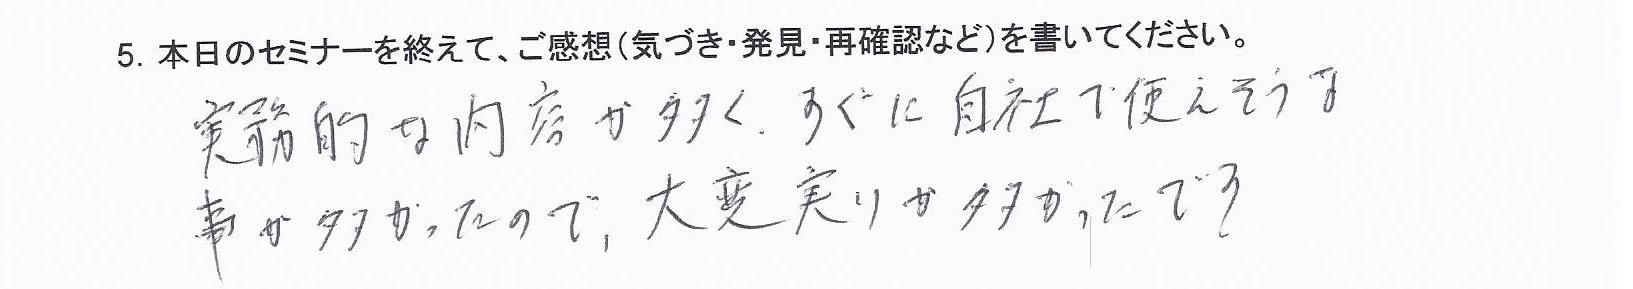 5. 本日のセミナーを終えて、ご感想(気づき・発見・再確認など)を書いてください。
実務的な内容が多く、すぐに自社で使えそうな
事が多かったので、大変実りが多かったです